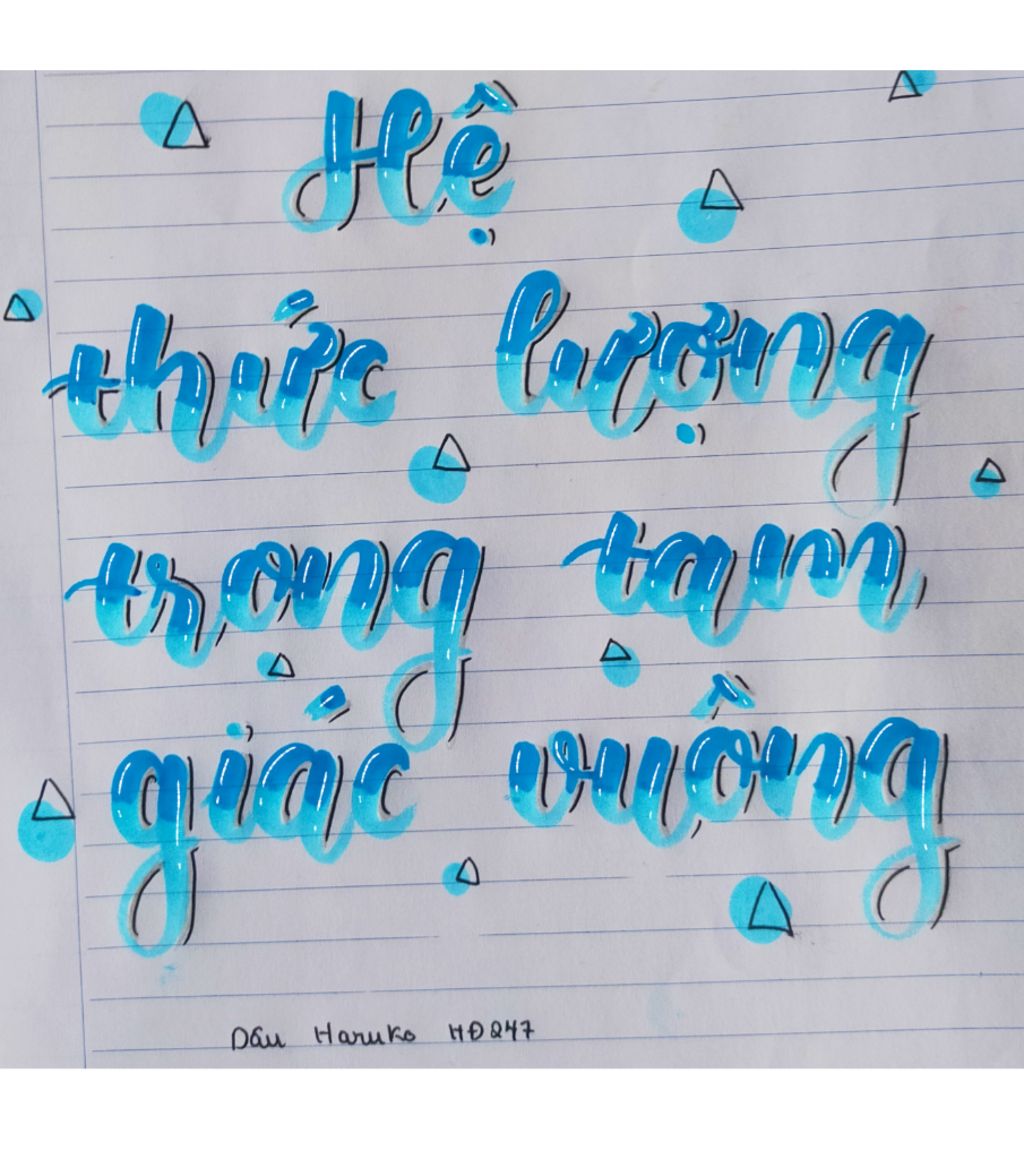 Hệ
thức lượng
trong tam
giác vuông
Dâu Haruko HĐ247